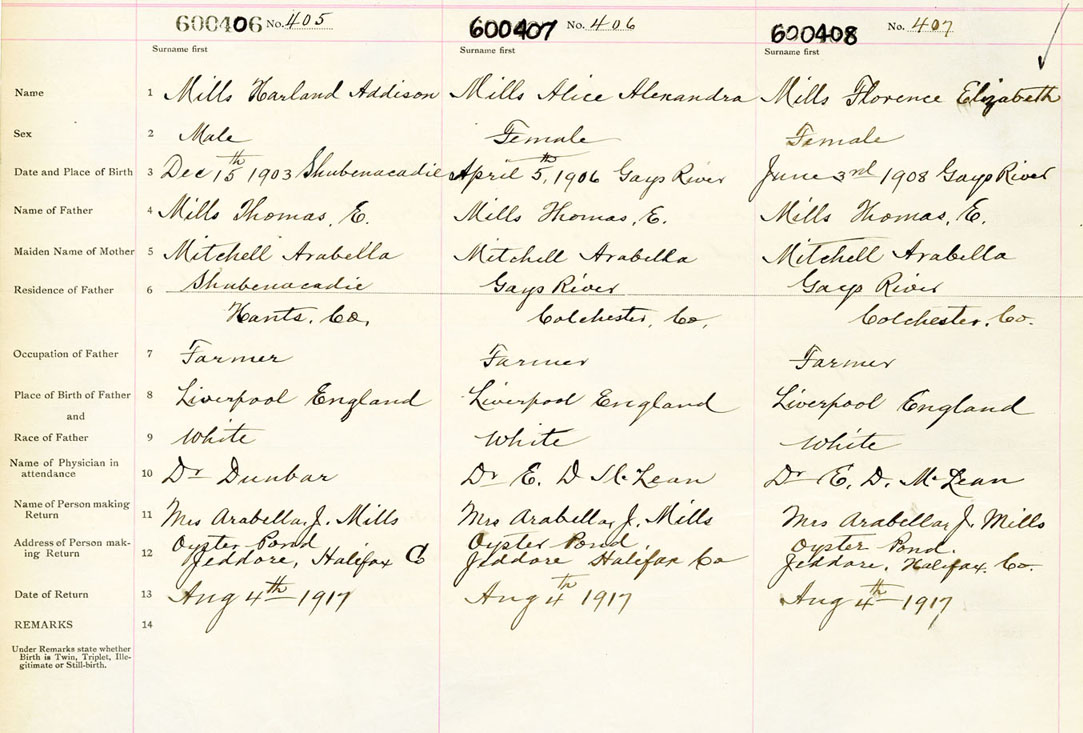 600406 No. 405 600407 No. 406 600408 No. 407
Surname first Surname first Surname first
Name 1 Mills Harland Addison Mills Alice Alexandra Mills Florence Elizabeth
Sex 2 Male Female Female
Date and Place of Birth 3 Dec 15th 1903 Shubenacadie April 5th, 1906 Gays River June 3rd 1908 Gays River
Name of Father 4 Mills Thomas, E. Mills Thomas, E. Mills Thomas, E.
Maiden Name of Mother 5 Mitchell Arabella Mitchell Arabella Mitchell Arabella
Residence of Father 6 Shubenacadie Gays River Gays River
Hants, Co, Colchester, Co, Colchester, Co.
Occupation of Father 7 Farmer Farmer Farmer
Place of Birth of Father 8 Liverpool England Liverpool England Liverpool England
and
Race of Father 9 White White White
Name of Physician in
attendance 10 Dr Dunbar Dr E. D McLean Dr E. D. McLean
Name of Person making
Return 11 Mrs Arabella, J. Mills Mrs Arabella, J. Mills Mrs Arabella, J. Mills
Address of Person mak- Oyster Pond Oyster Pond Oyster Pond.
ing Return 12 Jeddore, Halifax Co Jeddore Halifax Co Jeddore, Halifax. Co.
Date of Return 13 Aug 4th 1917 Aug 4th 1917 Aug 4th 1917
REMARKS 14
Under Remarks state whether
Birth is Twin, Triplet, Ille-
gitimate or Still-birth.